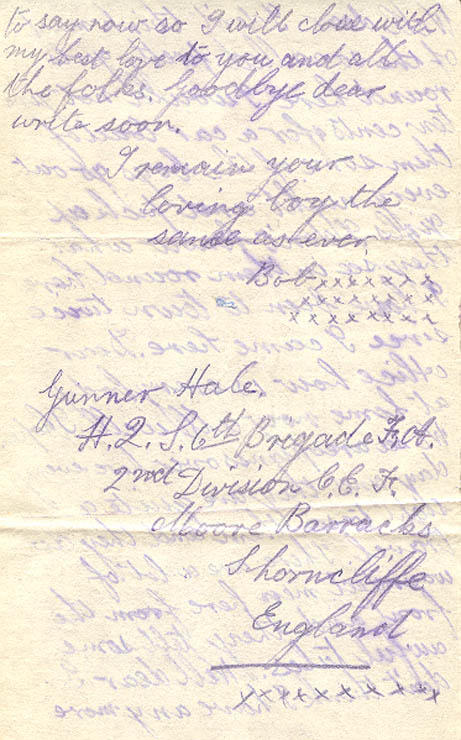 to say now so I will close with
my best love to you and all
the folks. Goodbye dear
write soon.
I remain your
loving boy the
same as ever.
Bob xxxxxxx
xxxxxxx
xxxxxxx
Gunner Hale.
H.Q.S. 6th Brigade F.A.
2nd Division C.E.F.
Moore Barracks
Shorncliffe
England
xxxxxxxxxx